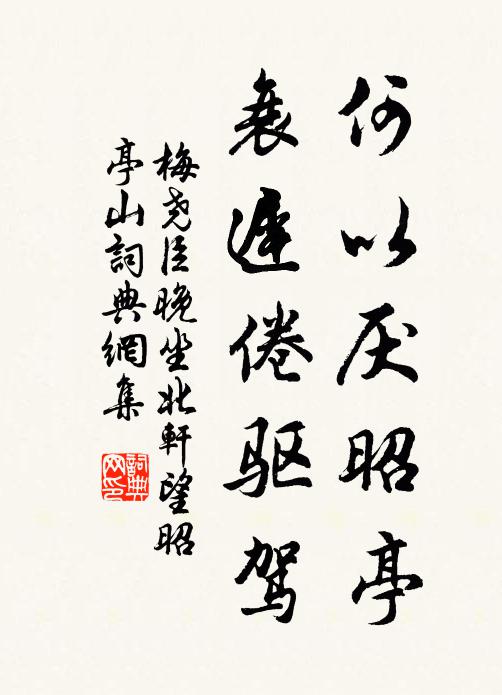 何以厌昭亭
衰遲倦驱驾
梅尧臣晚坐北軒望昭
亭山詞典網集
詞典
网印